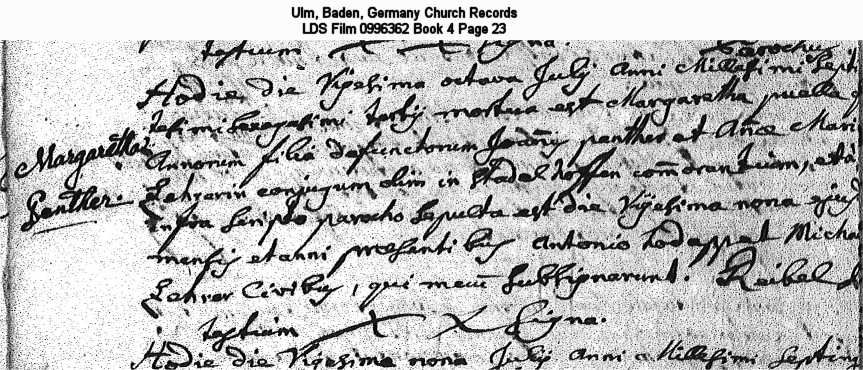 Ulm, Baden, Germany Church Records
LDS Film 0996362 Book 4 Page 23
testium
Signa.
Parochus
Hodie die Vigesima octava Julij Anni Millesimi Septi
tesimi Sexagesimi tertij mortua est Margaretha puella
Margaretha
Annorum filia defunctorum Joannis panther et Annæ Mari
Genther.
conjugum olim in Stadelhoffen commorantium, et à
infra scripto parocho sepulta est die Vigesima nona ejus
mensis et anni præsentibus Antonio Micha
Lehrer Civibus, qui mecum subsignarunt. Reibel
testium X X Signa.
Hodie die Vigesima nona Julij Anni Millesimi Septin